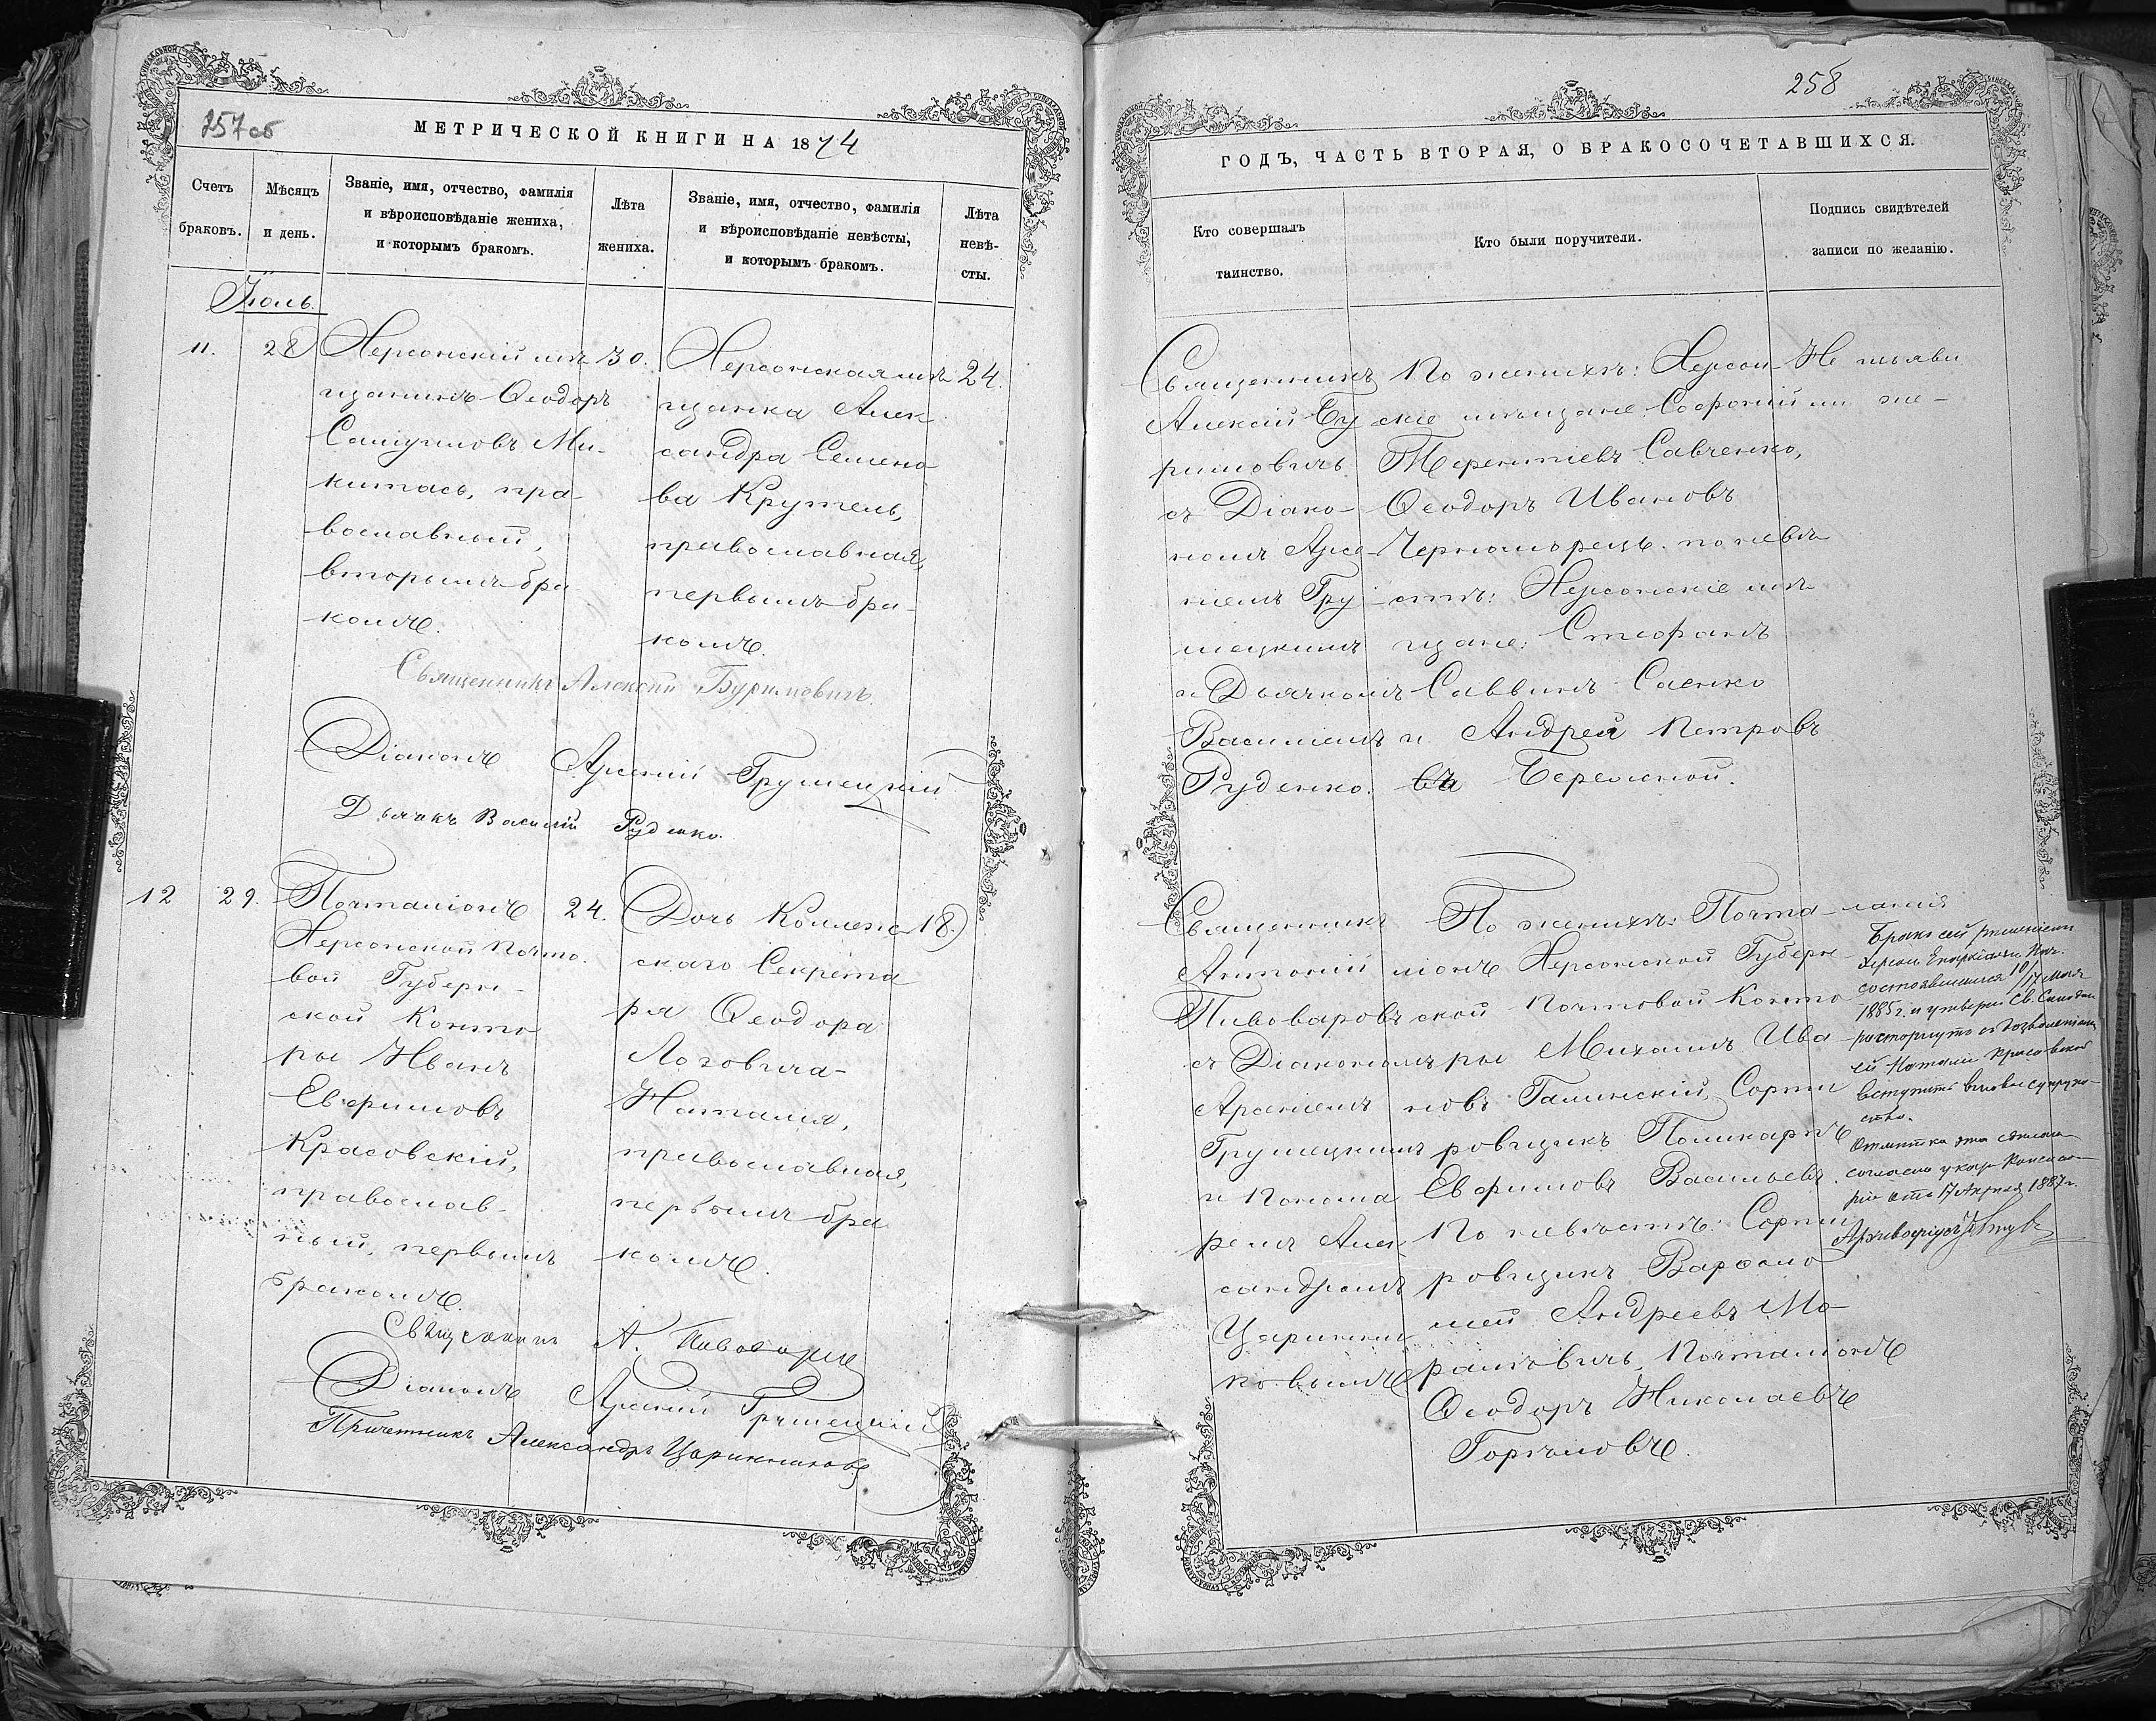 257 об
МЕТРИЧЕСКОЙ КНИГИ НА 1874
Счетъ
браковъ.
Мѣсяцъ
и день.
Званіе, имя, отчество, фамилія
и вѣроисповѣданіе жениха,
и которымъ бракомъ.
Лѣта
жениха.
Званіе, имя, отчество, фамилія
и вѣроисповѣданіе невѣсты,
и которымъ бракомъ.
Лѣта
невѣ-
сты.
Іюль.
11.
28
Херсонскій мѣ-
щанинъ Ѳеодоръ
Самуиловъ Ми-
китась, пра-
вославный,
вторымъ бра
комъ.
30.
Херсонская мѣ-
щанка Алек
сандра Семено
ва Крутень,
православная,
первымъ бра-
комъ.
24.
Священникъ Алексій Буримовичъ
Діаконъ Арсеній Грушецкій
Дьячкъ Василій Руденко.
12
29.
Почталіонъ
Херсонской Почто.
вой Губерн-
ской Конто
ры Иванъ
Евфимовъ
Красовскій,
православ-
ный, первымъ
бракомъ.
24.
Дочь Коллеж-
скаго Секрета
ря Ѳеодора
Лозовича-
Наталія,
православная,
первымъ бра
комъ.
18.
Священникъ А. Пивоваровъ
Діаконъ Арсеній Грушецкій
Причетникъ Александръ Царинниковъ
258
ГОДЪ, ЧАСТЬ ВТОРАЯ, О БРАКОСОЧЕТАВШИХСЯ.
Кто совершалъ
таинство.
Кто были поручители.
Подпись свидѣтелей
записи по желанію.
Священникъ
Алексій Бу
римовичъ
съ Діако-
номъ Арсе-
ніемъ Гру-
шецкимъ
и Дьячкомъ
Василіемъ
Руденко.
По женихѣ: Херсон-
скіе мѣщане: Софроній
Терентіевъ Савченко,
Ѳеодоръ Ивановъ
Черноморецъ. по невѣ-
стѣ: Херсонскіе мѣ-
щане: Стефанъ
Саввинъ Саенко
и Андрей Петровъ
Бережной.
Не изъяви
ли же-
ланія
Священникъ
Антоній
Пивоваровъ
съ Діакономъ
Арсеніемъ
Грушецкимъ
и Понома
ремъ Алек-
сандромъ
Царинни
ковымъ
По женихѣ: Почта-
ліонъ Херсонской Губерн
ской Почтовой Конто
ры Михаилъ Ива-
новъ Галинскій, Сорти
ровщикъ Поликарпъ
Евфимовъ Васильевъ.
По невѣстѣ: Сорти
ровщикъ Варѳоло
мей Андреевъ Мо-
Почталіонъ
Ѳеодоръ Николаевъ
Горѣловъ.
Бракъ сей рѣшеніемъ
Херсон. Епархіальн. Нач.
состоявшимся 10/17 Мая
1885 г. и утвержд. Св. Синодом
расторгнутъ съ дозволеніемъ
ей Наталіи Красовской
вступить въ новое супруже-
ство.
Отмѣтка эта сдѣлана
согласно указу Консисто-
ріи отъ 17 Апреля 1887 г.
Архиваріусъ